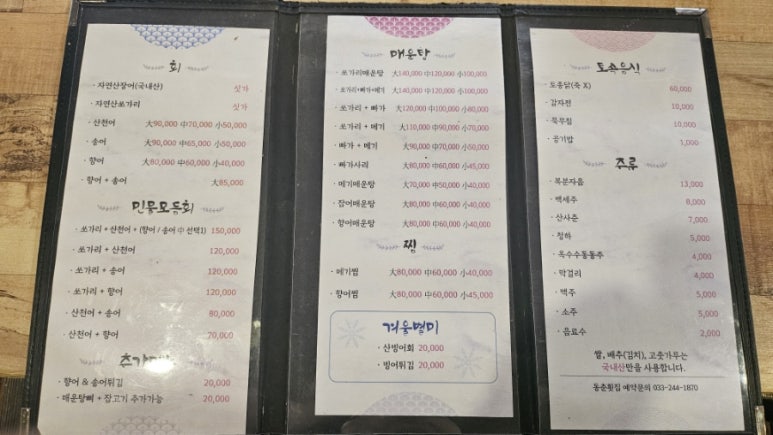 회
· 자연산장어(국내산) 싯가
· 자연산쏘가리 싯가
· 산천어 大90,000 中70,000 小50,000
· 송어 大90,000 中65,000 小50,000
· 향어 大80,000 中60,000 小40,000
· 향어 + 송어 大85,000
민물모듬회
· 쏘가리 + 산천어 + (향어 / 송어 中 선택1) 150,000
· 쏘가리 + 산천어 120,000
· 쏘가리 + 송어 120,000
· 쏘가리 + 향어 120,000
· 산천어 + 송어 80,000
· 산천어 + 향어 70,000
· 향어 & 송어튀김 20,000
· 매운탕뼈 + 잡고기 추가가능 20,000
매운탕
· 쏘가리매운탕 大140,000 中120,000 小100,000
· 쏘가리+빠가+메기 大140,000 中120,000 小100,000
· 쏘가리 + 빠가 大120,000 中100,000 小80,000
· 쏘가리 + 메기 大110,000 中90,000 小70,000
· 빠가 + 메기 大90,000 中70,000 小50,000
· 빠가사리 大80,000 中60,000 小45,000
· 메기매운탕 大70,000 中50,000 小40,000
· 잡어매운탕 大80,000 中60,000 小40,000
· 향어매운탕 大80,000 中60,000 小40,000
찜
· 메기찜 大80,000 中60,000 小40,000
· 향어찜 大80,000 中60,000 小45,000
겨울별미
· 산빙어회 20,000
· 빙어튀김 20,000
토속음식
· 도종닭(죽 X) 60,000
· 감자전 10,000
· 묵무침 10,000
· 공기밥 1,000
주류
· 복분자음 13,000
· 백세주 8,000
· 산사춘 7,000
· 청하 5,000
· 옥수수동동주 4,000
· 막걸리 4,000
· 맥주 5,000
· 소주 5,000
· 음료수 2,000
쌀, 배추(김치), 고춧가루는
국내산만을 사용합니다.
동춘횟집 예약문의 033-244-1870